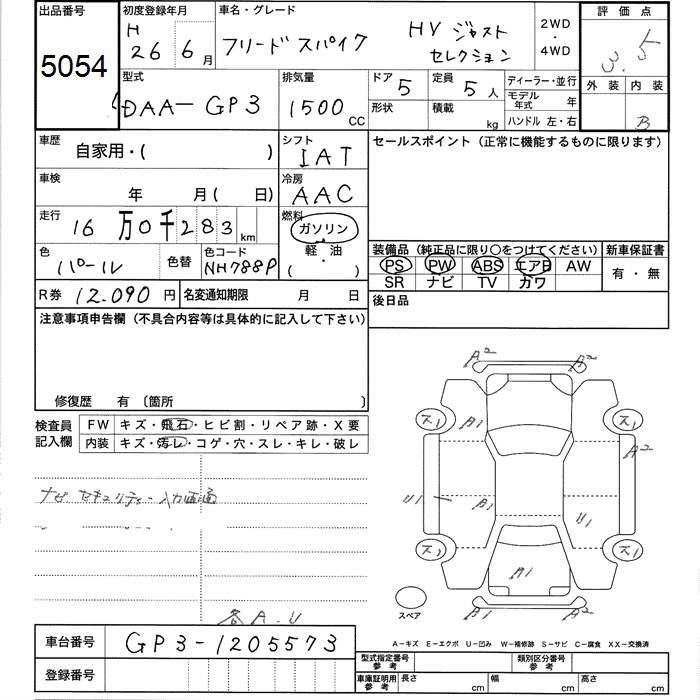 出品番号 初度登録年月 車名・グレード 2WD・4WD 評価点
5054 H 26 6月 フリードスパイク HV ジャスト セレクション 3.5
型式 排気量 ドア 5 定員 5人 ディーラー・並行 外装 内装
DAA-GP3 1500 CC 形状 積載 kg モデル年式 年 B
ハンドル 左・右
車歴 自家用・( ) シフト IAT セールスポイント(正常に機能するものに限ります)
車検 年 月( 日) 冷房 AAC
走行 16万0千283km 燃料 ガソリン・軽油 ( )
色 パール 色替 色コード NH788P
装備品(純正品に限り○をつけてください) 新車保証書
PS PW ABS エアB AW 有・無
SR ナビ TV カワ
R券 12.090円 名変通知期限 月 日 後日品
注意事項申告欄(不具合内容等は具体的に記入して下さい)
修復歴 有〔箇所 〕
検査員記入欄 FW キズ・飛石・ヒビ割・リペア跡・X要
内装 キズ・汚レ・コゲ・穴・スレ・キレ・破レ
A2 A2
ス1 A1 ス1
A2
ナビ セキュリティー入力
U1 A1 U1
ス1 ス1
A1
各A.U
スペア A1 A2
A-キズ E-エクボ U-凹み W-補修跡 S-サビ C-腐食 XX-交換済
車台番号 GP3-1205573
型式指定番号参考 類別区分番号参考
登録番号 車庫証明用参考 長さ cm 幅 cm 高さ cm